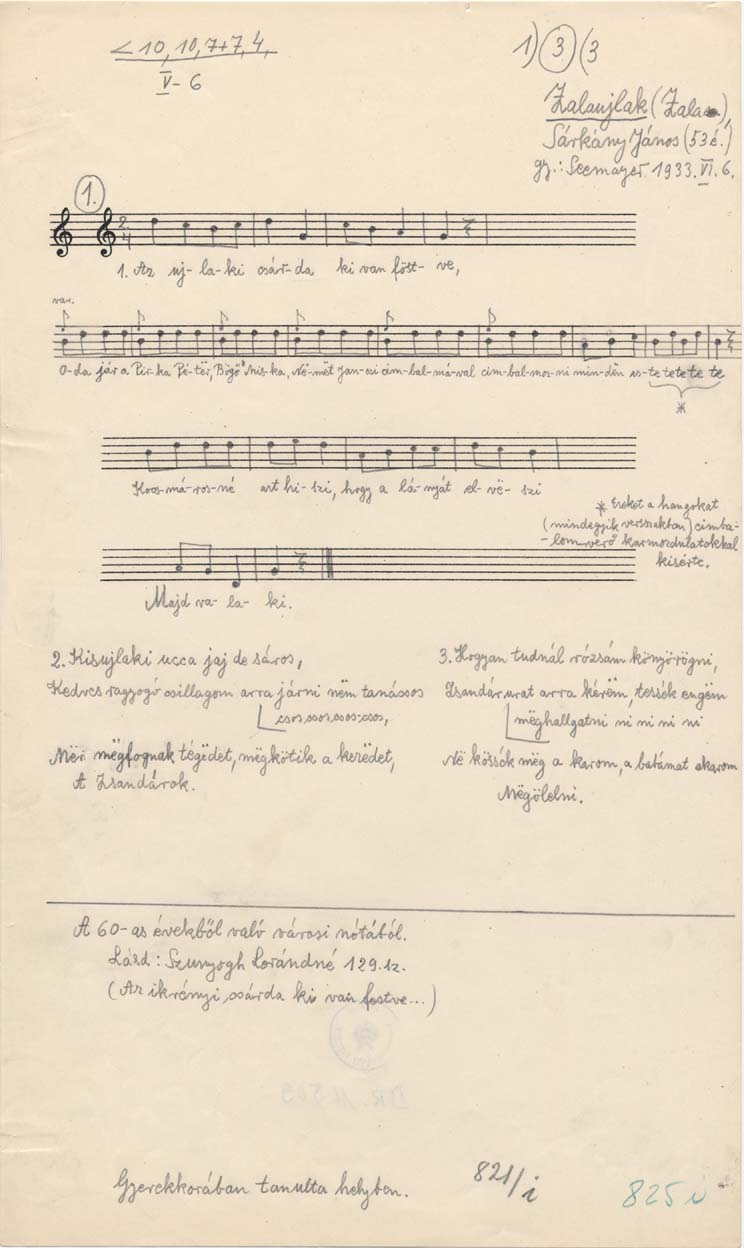 < 10, 10, 7+7, 4,
V - 6
1) 3 (3
Zalaujlak (Zala),
Sárkány János (53 é.)
gy.: Seemayer. 1933. VI. 6.
1.
2/4
1. Az uj- la- ki csár- da ki van föst- ve,
var.
O-da jár a Pir-ka Pé-tër, Bögő Mis-ka, Né-mët Jan-csi cim-bal-má-val cim-bal-moz-ni min-dën es-te te te te te
*
Kocs-má-ros-né azt hi-szi, hogy a lá-nyát el-vë-szi
* Ezeket a hangokat
(mindegyik versszakban) cimba-
-lomverő karmozdulatokkal
kisérte.
Majd va- la- ki.
2. Kisujlaki ucca jaj de sáros,
Kedves ragyogó csillagom arra járni nëm tanácsos
csos, csos, csos-csos,
Mër mëgfognak tégëdet, mëgkötik a kezëdet,
A Zsandárok.
3. Hogyan tudnál rózsám könyörögni,
Zsandár urat arra kérëm, tessék engëm
mëghallgatni ni ni ni ni
Në kössék mëg a karom, a babámat akarom
Mëgölelni.
A 60-as évekből való városi nótából.
Lásd: Szunyogh Lorándné 129. lz.
(Az ikrényi csárda ki van festve...)
Gyerekkorában tanulta helyben.
821/i
825 i